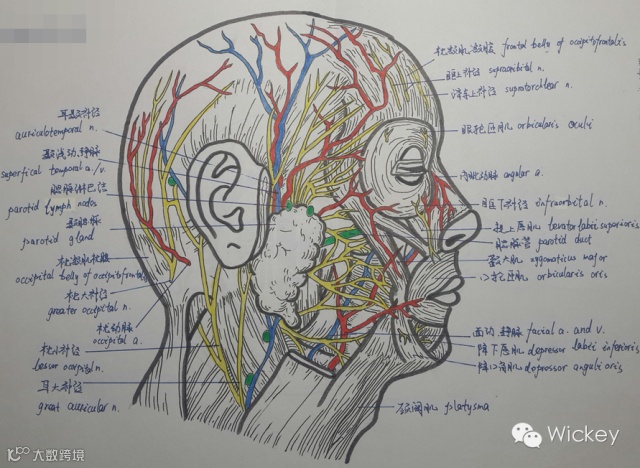 耳颞神经
auriculotemporal n.
颞浅动、静脉
superfical temporal a./v.
腮腺淋巴结
parotid lymph nodes
parotid gland
枕额肌枕腹
occipital belly of occipitofrontalis
枕大神经
greater occipital n.
枕动脉
occipital a.
枕小神经
lesser occipital n.
耳大神经
great auricular n.
枕额肌额腹 frontal belly of occipitofrontalis
眶上神经 supraorbital n.
滑车上神经 supratrochlear n.
眼轮匝肌 orbicularis oculi
内眦动脉 angular a.
眶下神经 infraorbital n.
提上唇肌 levator labii superioris
腮腺管 parotid duct
颧大肌 zygomaticus major
口轮匝肌 orbicularis oris
面动、静脉 facial a. and v.
降下唇肌 depressor labii inferioris
降口角肌 depressor anguli oris
颈阔肌 platysma
Wickey
大数跨境